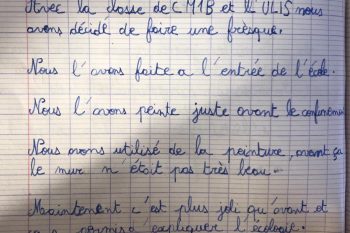 Avec la classe de CM1B et l'ULIS nous
avons décidé de faire une fresque.
Nous l'avons faite a l'entrée de l'école.
Nous l'avons peinte juste avant le confinemen
Nous avons utilisé de la peinture, avant ça
le mur n'était pas très beau.
Maintement c'est plus joli qu'avant et
permis d'expliquer l'écologie.